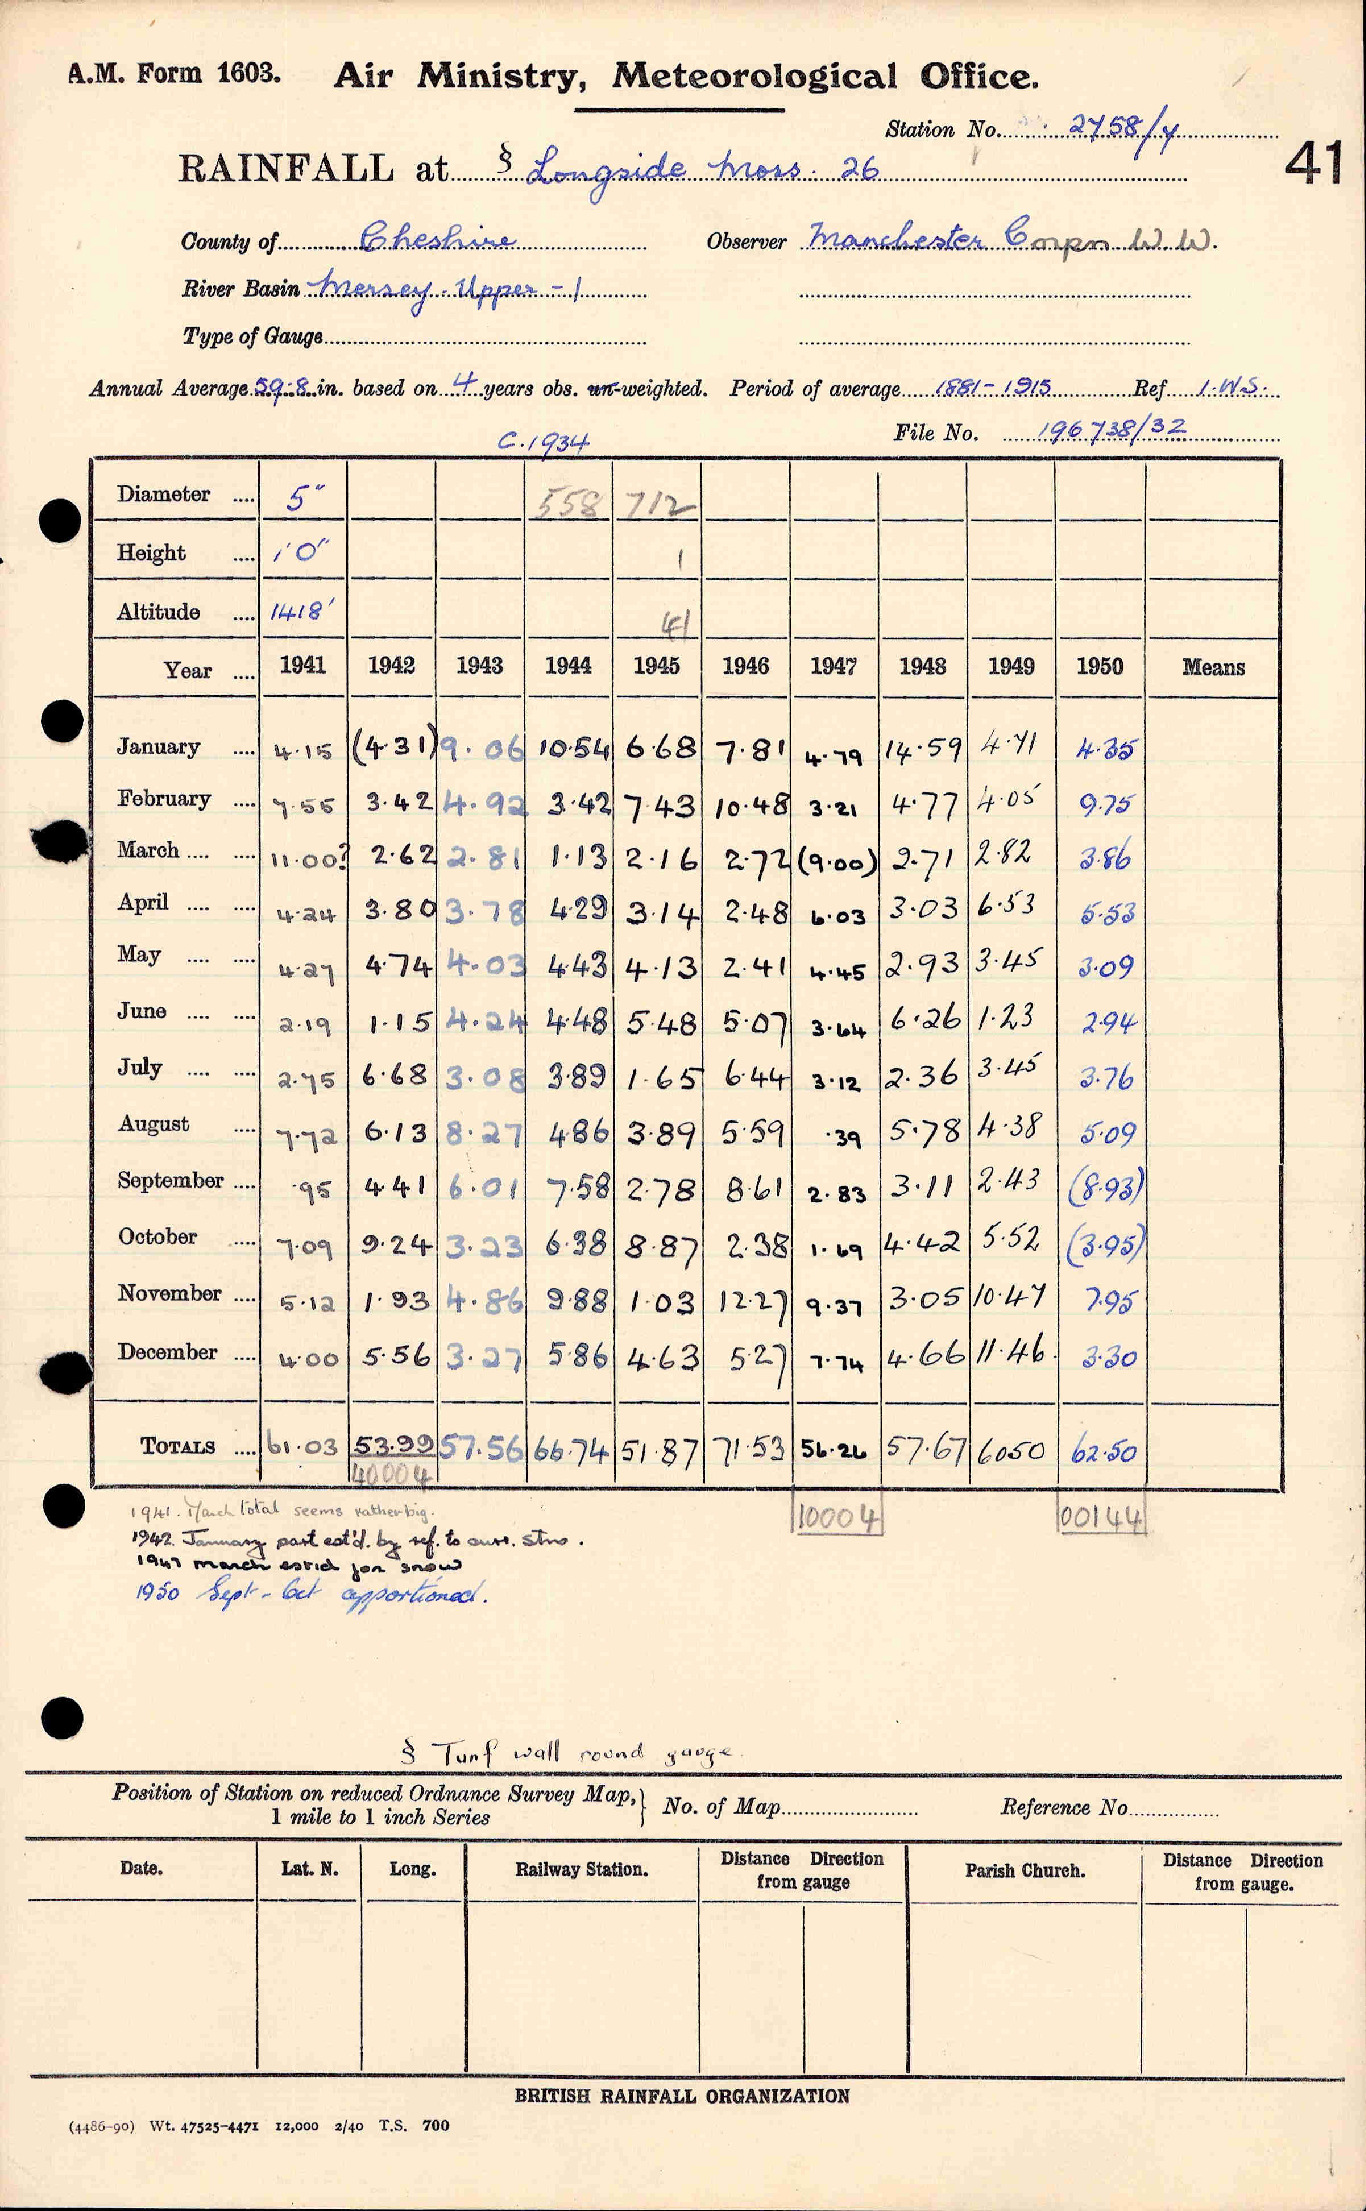 A.M. Form 1603. Air Ministry, Meteorological Office.
Station No. 2758/7
41
RAINFALL at § Longside Moss. 26
County of Cheshire Observer Manchester Corpn W.W.
River Basin Mersey. Upper - 1
Type of Gauge
Annual Average 59.8 in. based on 4 years obs. un-weighted. Period of average 1881-1915 Ref. I.W.S.
C.1934 File No. 196738/32
Diameter .... 5" 558 712
Height .... 1'0" 1
Altitude .... 1418' 41
Year .... 1941 1942 1943 1944 1945 1946 1947 1948 1949 1950 Means
January .... 4.15 (4.31) 9.06 10.54 6.68 7.81 4.79 14.59 4.71 4.35
February .... 7.55 3.42 4.92 3.42 7.43 10.48 3.21 4.77 4.05 9.75
March .... .... 11.00? 2.62 2.81 1.13 2.16 2.72 (9.00) 2.71 2.82 3.86
April .... .... 4.24 3.80 3.78 4.29 3.14 2.48 6.03 3.03 6.53 5.53
May .... .... 4.27 4.74 4.03 4.43 4.13 2.41 4.45 2.93 3.45 3.09
June .... .... 2.19 1.15 4.24 4.48 5.48 5.07 3.64 6.26 1.23 2.94
July .... .... 2.75 6.68 3.08 3.89 1.65 6.44 3.12 2.36 3.45 3.76
August .... 7.72 6.13 8.27 4.86 3.89 5.59 .39 5.78 4.38 5.09
September .... .95 4.41 6.01 7.58 2.78 8.61 2.83 3.11 2.43 (8.93)
October .... 7.09 9.24 3.23 6.38 8.87 2.38 1.69 4.42 5.52 (3.95)
November .... 5.12 1.93 4.86 9.88 1.03 12.27 9.37 3.05 10.47 7.95
December .... 4.00 5.56 3.27 5.86 4.63 5.27 7.74 4.66 11.46. 3.30
TOTALS .... 61.03 53.99 57.56 66.74 51.87 71.53 56.26 57.67 60.50 62.50
40004
10004 00144
1941. March total seems rather big.
1942. January part est'd. by ref. to surr. stns.
1947 march estid for snow
1950 Sept - Oct apportioned.
§ Turf wall round gauge.
Position of Station on reduced Ordnance Survey Map, 1 mile to 1 inch Series } No. of Map Reference No.
Date. Lat. N. Long. Railway Station. Distance Direction from gauge Parish Church. Distance Direction from gauge.
BRITISH RAINFALL ORGANIZATION
(4486-90) Wt. 47525-4471 12,000 2/40 T.S. 700